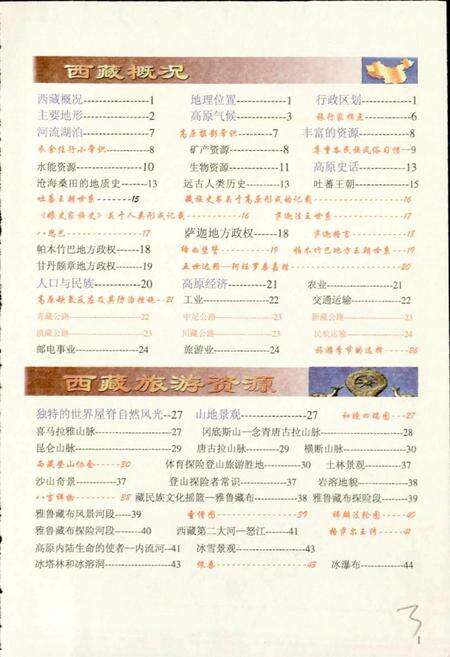 西藏概况
西藏概况---1 地理位置---1 行政区划---1
主要地形---2 高原气候---3 旅行家棋王---6
河流湖泊---7 高原摄影常识---7 丰富的资源---8
衣食住行小常识---8 矿产资源---8 尊重各民族风俗习惯---9
水能资源---10 生物资源---11 高原史话---13
沧海桑田的地质史---13 远古人类历史---13 吐蕃王朝---15
吐蕃王朝世系---15 藏族史书关于高原形成的记载---16
《娘史家族史》关于人类形成记载---16 萨迦法王世系---17
八思巴---17 萨迦地方政权---18 萨迦格言---18
帕木竹巴地方政权---18 帕木竹巴地方王朝世系---19
甘丹颇章地方政权---19 五世达赖—阿旺罗桑嘉措---20
人口与民族---20 高原经济---21 农业---21
高原缺氧反应及其防治措施---21 工业---22 交通运输---22
青藏公路---22 中尼公路---23 新藏公路---23
滇藏公路---23 川藏公路---23 民航运输---24
邮电事业---24 旅游业---24 旅游季节的选择---26
西藏旅游资源
独特的世界屋脊自然风光--27 山地景观---27 和睦四瑞图---27
喜马拉雅山脉---27 冈底斯山—念青唐古拉山脉---28
昆仑山脉---29 唐古拉山脉---29 横断山脉---30
西藏登山协会---30 体育探险登山旅游胜地---30 土林景观---37
沙山奇景---37 登山探险者常识---37 岩溶地貌---38
八吉祥物---38 藏民族文化摇篮—雅鲁藏布---38 雅鲁藏布探险段---39
雅鲁藏布风景河段---39 39 40
雅鲁藏布探险河段---40 西藏第二大河—怒江---41 格萨尔王传---41
高原内陆生命的使者—内流河--41 冰雪景观---43
冰塔林和冰溶洞---43 43 冰瀑布---44
3
1